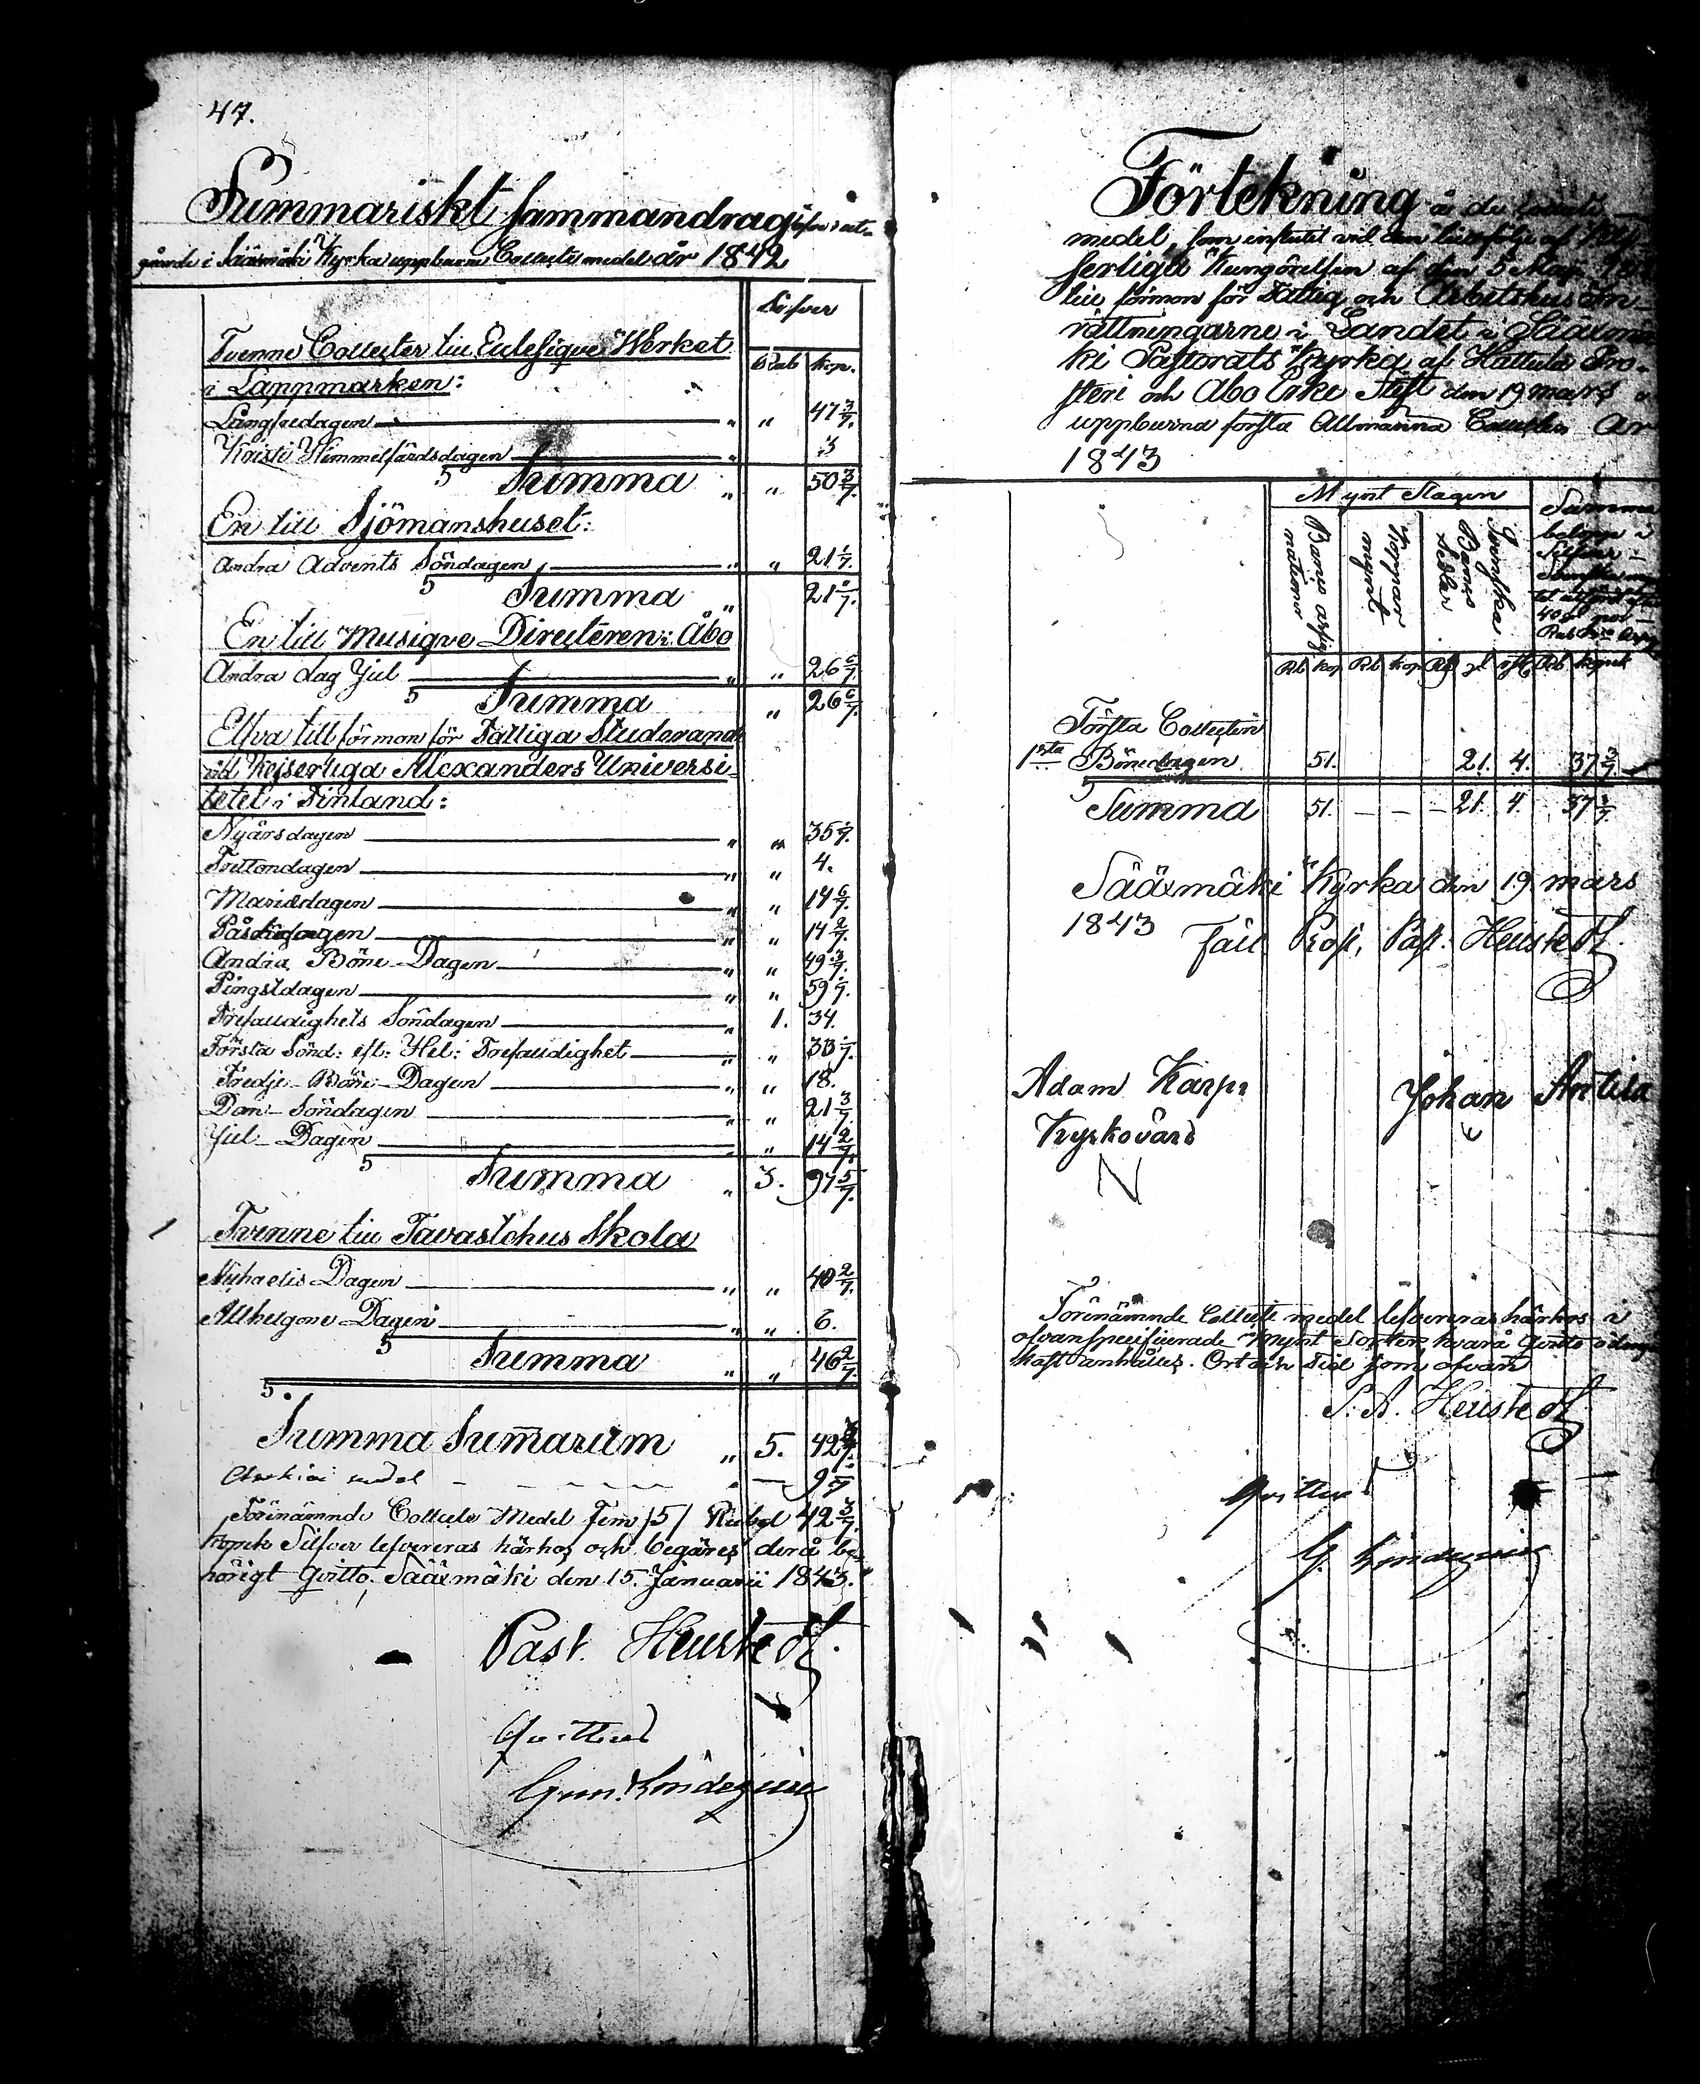 47.
Summariskt Sammandrag öfver ut-
gående i Sääxmäki Kyrka uppburne Collecte medel år 1842
Silfver
Rub. Kop.
Tvenne Collecter till Eclesique Werket
i Lappmarken:
Långfredagen " " 47 3/7.
Kristi Himmelsfärdsdagen " 3
Summa " " 50 3/7.
En till Sjömanshuset:
Andra Advents Söndagen " " 21 1/7.
Summa " 21 1/7.
En till Musique Directeren i Åbo
Andra dag Jul " " 26 6/7.
Summa " 26 6/7.
Elfva till förmon för Fattiga Studerande
vid Kejserliga Alexanders Universi-
tetet i Finland:
Nyårsdagen " " 35
Trettondagen " " 4.
Mariædagen " " 14 6/7.
Påskdagen " " 14 2/7.
Andra Böne-Dagen " " 49 3/7.
Pingstdagen " " 59
Trefalldighets Söndagen " 1. 34.
Första Sönd: eft: Hel: Trefalldighet " " 33
Tredje-Böne-Dagen " " 18.
Dom-Söndagen " " 21 3/7
Jul-Dagen " 14 2/7.
Summa " 3. 97 5/7.
Tvenne till Tavastehus Skola
Michaelis-Dagen " " 40 2/7.
Allhelgone-Dagen " " 6.
Summa " " 46 2/7.
Summa Summarum " 5. 42 3/7.
medel — 9
Förenämnde Collecte Medel Fem /5/ Rubel 42 3/7.
Kopek Silfver lefvereras härhos och begäres derå be-
hörigt Qvitto. Sääxmäki den 15. Januarii 1843.
Past. Heustedt.
Qvitteras
Förtekning å de
medel, som influtit vid den till följe af Kej-
serliga Kungörelsen af den 5 Maj
till förmon för Fattig och Arbetshus In-
rättningarne i Landet i Sääxmä-
ki Pastorats Kyrka af Hattula Pro-
steri och Åbo Erke Stift den 19 mars
uppburna första Allmänna Collecten År
1843
Mynt Slagen
Banco assignationer
Koppar mynt
Svenska Banco Sedlar
Summa
belopp i
Silfver
Rb. kop. Rb. kop. Rd. sk. rst. Rb. kopek
Första Collecten
1sta Bönedagen 51. 21. 4. 37 3/7.
Summa 51. — — — 21. 4. 37 3/7.
Sääxmäki Kyrka den 19 mars
1843
Fäll. Prost, Past. Heustedt.
Adam Karps Johan Antila
Kyrkovärd
Förenämnde Collecte medel lefvereras härhos i
ofvanspecificerade Mynt Sorter, hvarå Qvitto
anhålles. Ort och Tid som ofvan
S. A. Heustedt.
Qvitteras